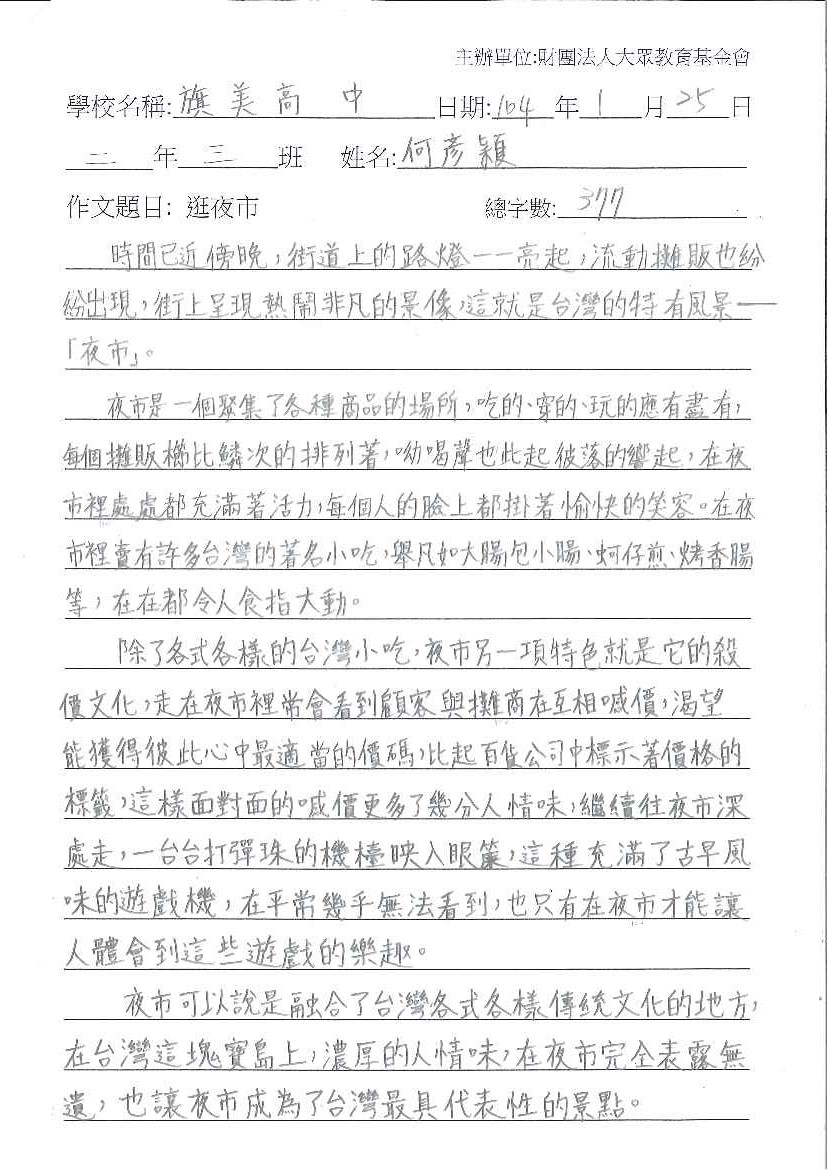 主辦單位:財團法人大眾教育基金會
學校名稱:旗美高中 日期:104年1月25日
二年三班 姓名:何彥穎
作文題目: 逛夜市 總字數:377
時間已近傍晚，街道上的路燈一一亮起，流動攤販也紛
紛出現，街上呈現熱鬧非凡的景像，這就是台灣的特有風景——
「夜市」。
夜市是一個聚集了各種商品的場所，吃的、穿的、玩的應有盡有，
每個攤販櫛比鱗次的排列著，呦喝聲也此起彼落的響起，在夜
市裡處處都充滿著活力，每個人的臉上都掛著愉快的笑容。在夜
市裡賣有許多台灣的著名小吃，舉凡如大腸包小腸、蚵仔煎、烤香腸
等，在在都令人食指大動。
除了各式各樣的台灣小吃，夜市另一項特色就是它的殺
價文化，走在夜市裡常會看到顧客與攤商在互相喊價，渴望
能獲得彼此心中最適當的價碼，比起百貨公司中標示著價格的
標籤，這樣面對面的喊價更多了幾分人情味，繼續往夜市深
處走，一台台打彈珠的機檯映入眼簾，這種充滿了古早風
味的遊戲機，在平常幾乎無法看到，也只有在夜市才能讓
人體會到這些遊戲的樂趣。
夜市可以說是融合了台灣各式各樣傳統文化的地方，
在台灣這塊寶島上，濃厚的人情味，在夜市完全表露無
遺，也讓夜市成為了台灣最具代表性的景點。